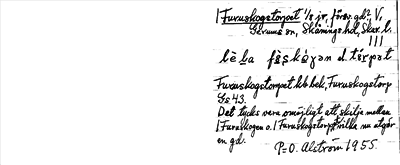 1 Furuskogstorpet 1/8 jr, försv. gd?. V.
Gerums sn, Skånings hd, Skar. l.
III
Furuskogstorpet kb bek, Furuskogstorp
Gs 43.
Det tycks vara omöjligt att skilja mellan
1 Furuskogen o. 1 Furuskogstorpet, vilka nu utgör
en gd.
P=O. Alström 1955.